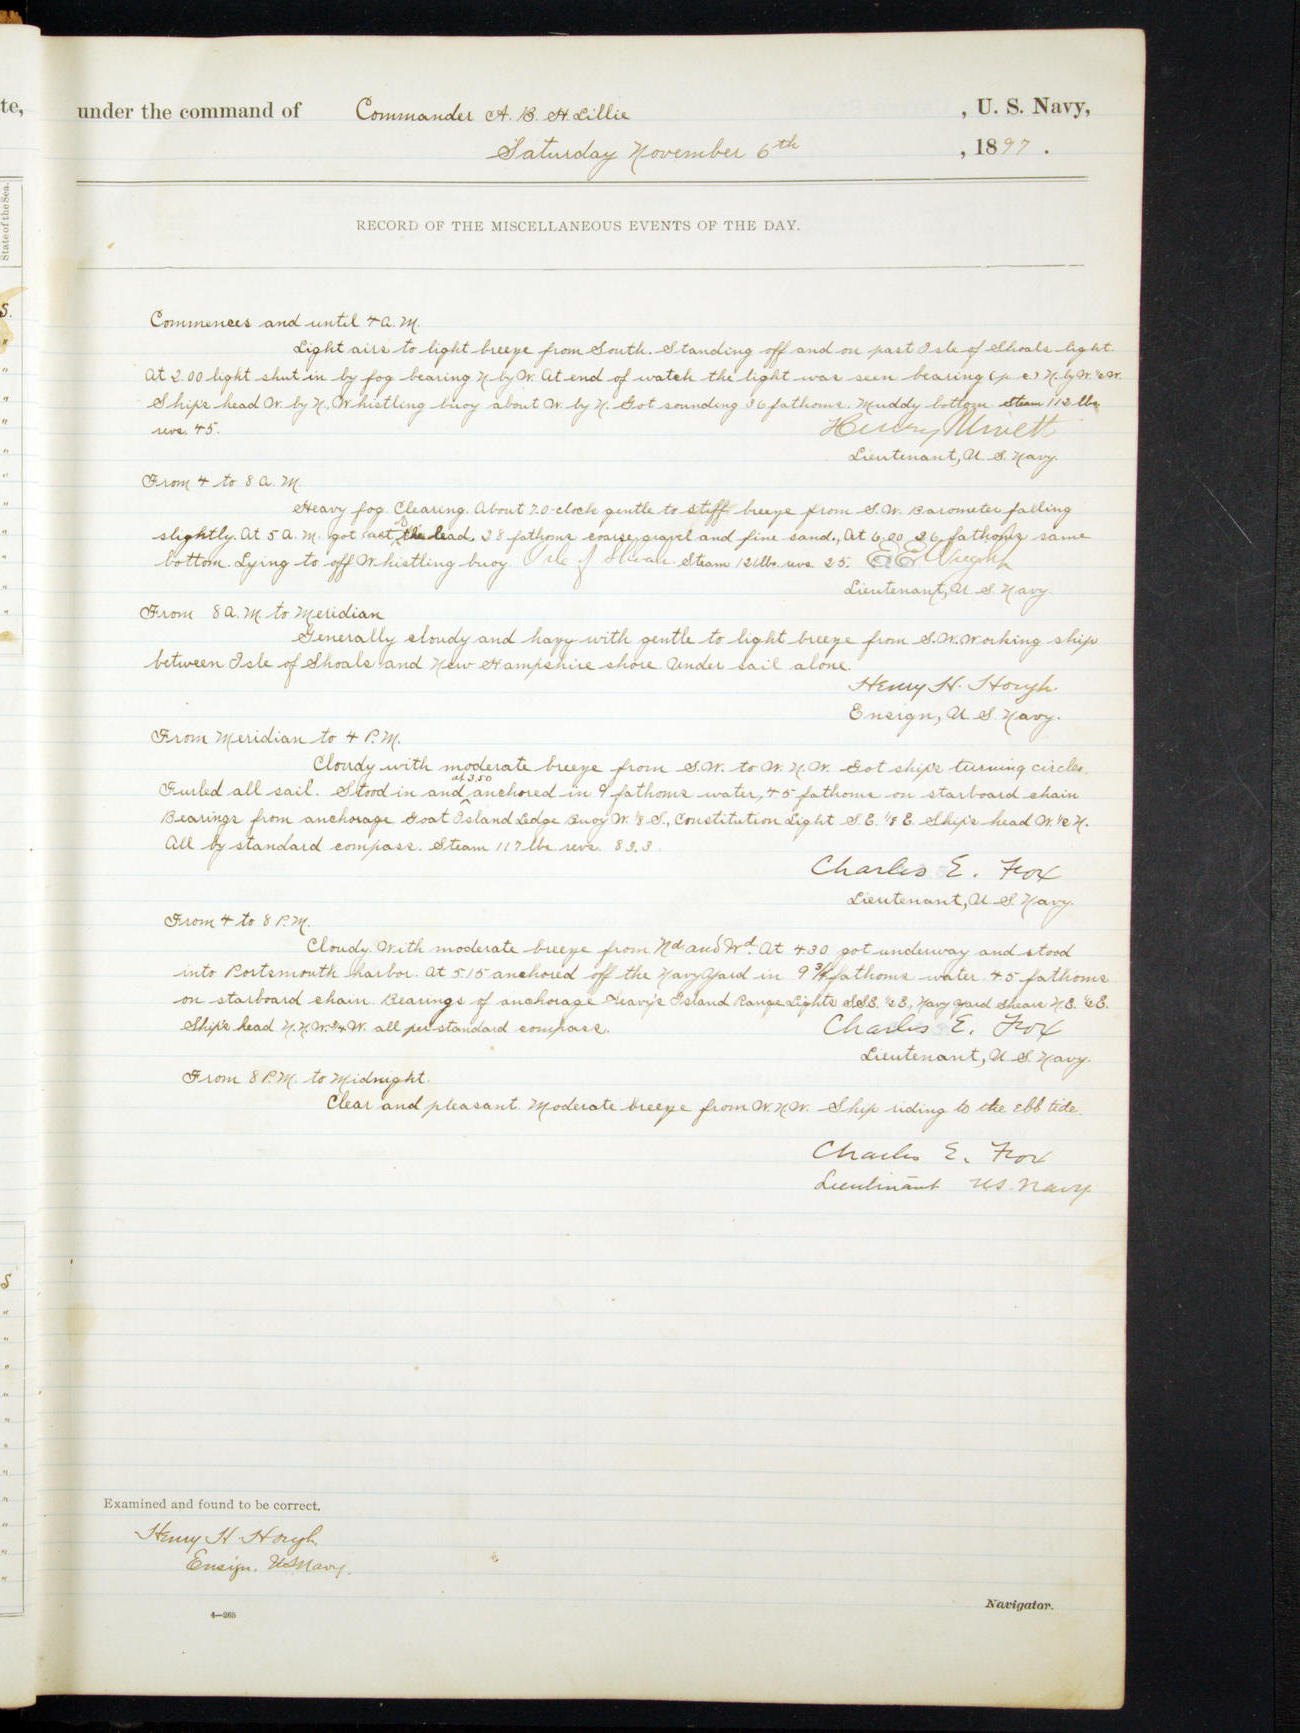 te,
under the command of Commander A. B. H. Lillie, U. S. Navy,
Saturday November 6th, 1897.
State of the Sea.
RECORD OF THE MISCELLANEOUS EVENTS OF THE DAY.
Commences and until 4 A.M.
Light airs to light breeze from South. Standing off and on past Isle of Shoals light.
At 2.00 light shut in by fog bearing N by W. At end of watch the light was seen bearing (p. c.) N. by W. ½ W.
Ship's head W. by N. Whistling buoy about W. by N. Got sounding 36 fathoms. Muddy bottom Steam 112 lbs
revs. 45.
Henry
Lieutenant, U. S. Navy.
From 4 to 8 A.M.
Heavy fog. Clearing. About 7.0-clock gentle to stiff breeze from S.W. Barometer falling
slightly. At 5 A.M. got cast of the lead, 28 fathoms coarse gravel and fine sand., At 6.00 26 fathoms same
bottom. Lying to off Whistling buoy Isle of Shoals. Steam 121 lbs. revs. 25. E. E. Wright
Lieutenant, U. S. Navy.
From 8 A.M. to Meridian
Generally cloudy and hazy with gentle to light breeze from S.W. Working ship
between Isle of Shoals and New Hampshire shore under sail alone.
Henry H. Hough.
Ensign, U. S. Navy.
From Meridian to 4 P.M.
Cloudy with moderate breeze from S.W. to W.N.W. Got ship's turning circles.
Furled all sail. Stood in and at 3.50 anchored in 9 fathoms water, 45 fathoms on starboard chain
Bearings from anchorage Goat Island Ledge Buoy W. ⅛ S., Constitution Light S.E. ⅛ E. Ship's head W. ½ N.
All by standard compass. Steam 117 lbs. revs. 83.3.
Charles E. Fox
Lieutenant, U. S. Navy.
From 4 to 8 P.M.
Cloudy. With moderate breeze from Nd and Wd. At 4.30 got underway and stood
into Portsmouth harbor. At 5.15 anchored off the Navy Yard in 9 ¾ fathoms water 45 fathoms
on starboard chain. Bearings of anchorage Island Range Lights S.S.E. ½ E., Navy Yard Shears N.E. ½ E.
Ship's head N.N.W. ¾ W. all per standard compass.
Charles E. Fox
Lieutenant, U. S. Navy.
From 8 P.M. to Midnight.
Clear and pleasant. Moderate breeze from W.N.W. Ship riding to the ebb tide.
Charles E. Fox
Lieutenant US. Navy
Examined and found to be correct.
Henry H. Hough.
Ensign. U.S. Navy.
Navigator.
4—265